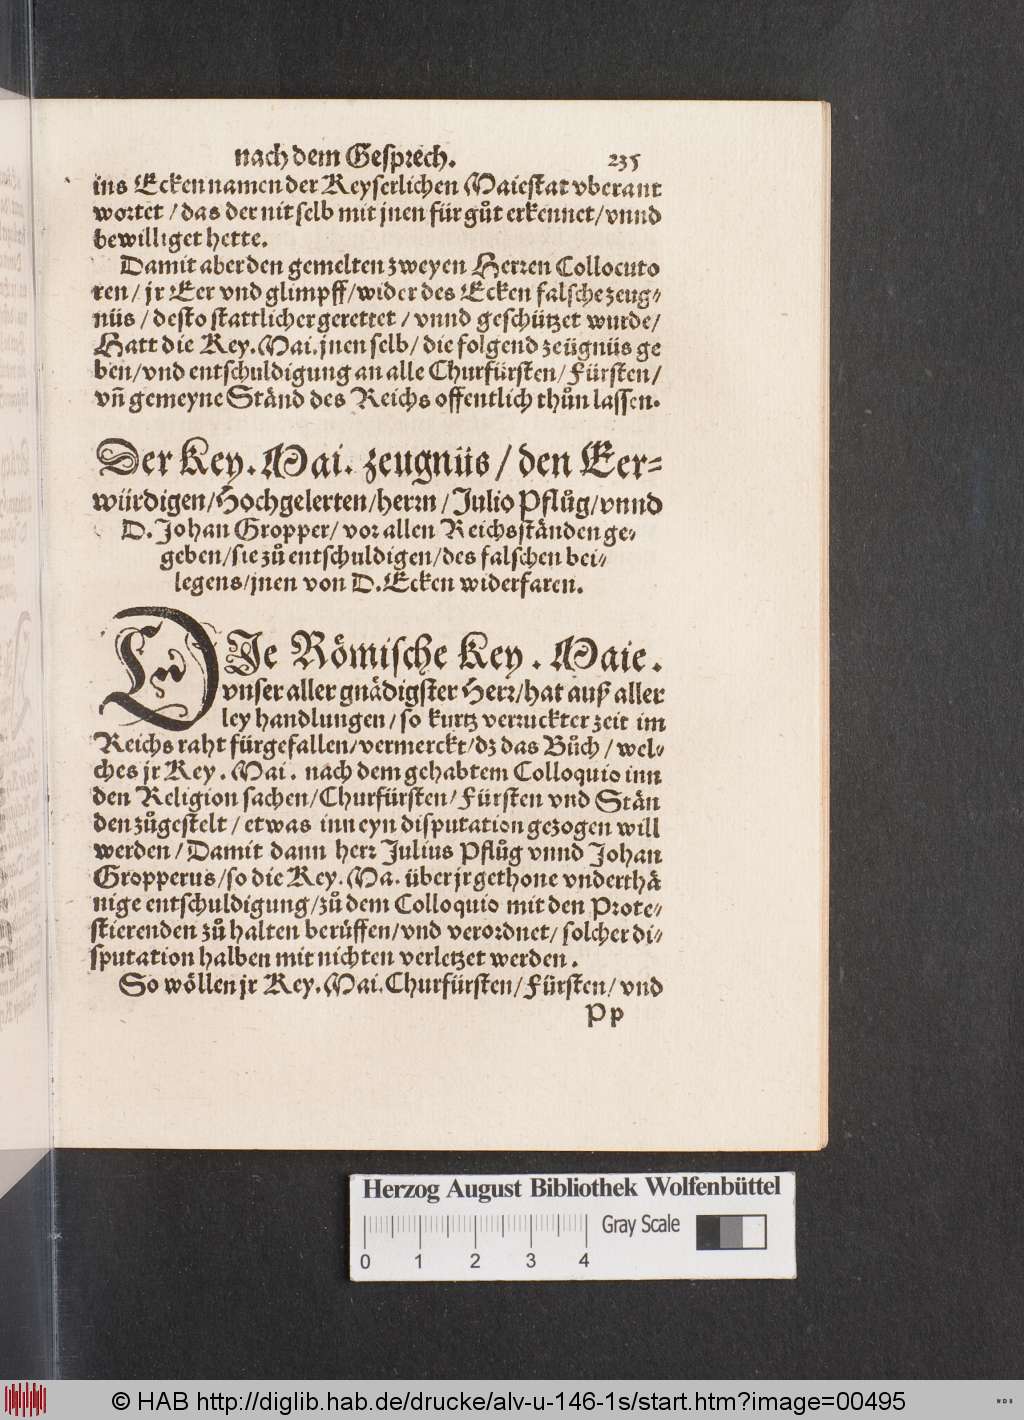 nach dem Gesprech. 235
ins Ecken namen der Keyserlichen Maiestat vberant
wortet / das der nit selb mit jnen für gůt erkennet/vnnd
bewilliget hette.
Damit aber den gemelten zweyen Herren Collocuto
ren / jr Eer vnd glimpff/wider des Ecken falsche zeug⸗
nüs / desto stattlicher gerettet / vnnd geschützet wurde/
Hatt die Key.Mai.jnen selb/ die folgend zeügnüs ge
ben/vnd entschuldigung an alle Churfürsten/ Fürsten/
vñ gemeyne Ständ des Reichs offentlich thůn lassen.
Der Key. Mai. zeugnüs / den Eer⸗
würdigen/Hochgelerten/herrn / Julio Pflůg/vnnd
D. Johan Gropper/ vor allen Reichsständen ge⸗
geben/sie zů entschuldigen/des falschen bei⸗
legens/jnen von D.Ecken widerfaren.
DIe Römische Key. Maie.
vnser aller gnädigster Herr/hat auß aller
ley handlungen / so kurtz verruckter zeit im
Reichs raht fürgefallen/vermerckt/dz das Bůch / wel⸗
ches jr Key. Mai. nach dem gehabtem Colloquio inn
den Religion sachen/Churfürsten/ Fürsten vnd Stän
den zůgestelt / etwas inn eyn disputation gezogen will
werden / Damit dann herr Julius Pflůg vnnd Johan
Gropperus/so die Key. Ma. über jr gethone vnderthä
nige entschuldigung/zů dem Colloquio mit den Prote⸗
stierenden zů halten berüffen/vnd verordnet/ solcher di⸗
sputation halben mit nichten verletzet werden.
So wöllen jr Key.Mai.Churfürsten/Fürsten/ vnd
Pp
Herzog August Bibliothek Wolfenbüttel
Gray Scale
0 1 2 3 4
© HAB http://diglib.hab.de/drucke/alv-u-146-1s/start.htm?image=00495